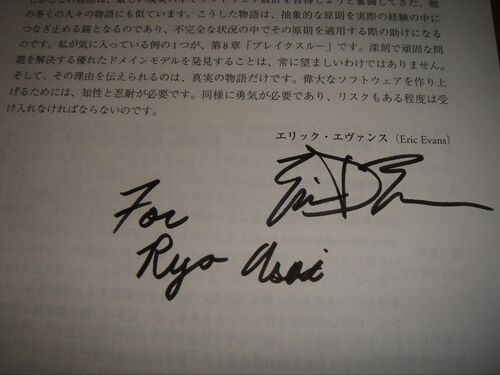 他の多くの人々の物語にも似ています。こうした物語は、抽象的な原則を実際の経験の中に
つなぎ止める錨となるのであり、不完全な状況の中でその原則を適用する際の助けになる
のです。私が気に入っている例の1つが、第8章「ブレイクスルー」です。深刻で頑固な問
題を解決する優れたドメインモデルを発見することは、常に望ましいわけではありません。
そして、その理由を伝えられるのは、真実の物語だけです。偉大なソフトウェアを作り上
げるためには、知性と忍耐が必要です。同様に勇気が必要であり、リスクもある程度は受
け入れなければならないのです。
エリック・エヴァンス(Eric Evans)
For
Ryo Asai